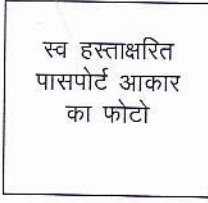 स्व हस्ताक्षरित
पासपोर्ट आकार
का फोटो